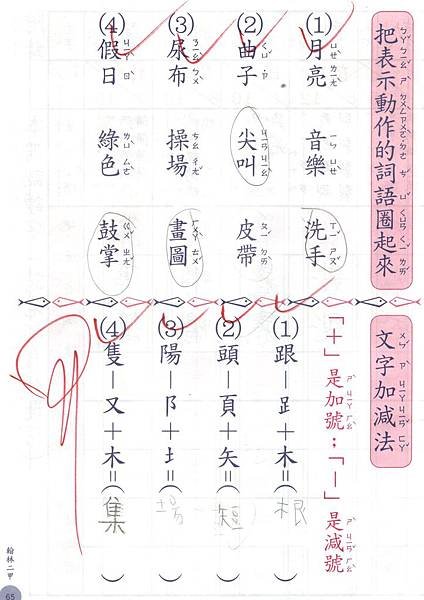 把表示動作的詞語圈起來
(1)月亮 音樂 洗手
(2)曲子 尖叫 皮帶
(3)尿布 操場 畫圖
(4)假日 綠色 鼓掌
文字加減法
「＋」是加號；「－」是減號
(1)跟－𧾷＋木＝(根)
(2)頭－頁＋矢＝(短)
(3)陽－阝＋土＝(場)
(4)隻－又＋木＝(集)
翰林二甲
65